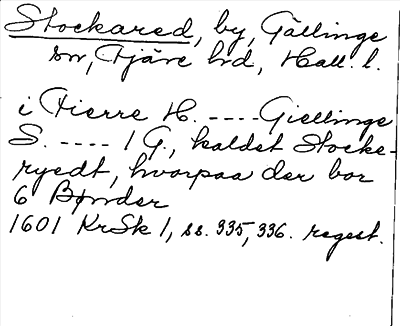 Stockared, by, Gällinge
sn, Fjäre hd, Hall. l.
i Fierre H. ---- Giellinge
S. ---- 1 G., kaldet Stocke-
ryedt, hvorpaa der bor
6 Bønder
1601 KrSk 1, ss. 335, 336. regest.